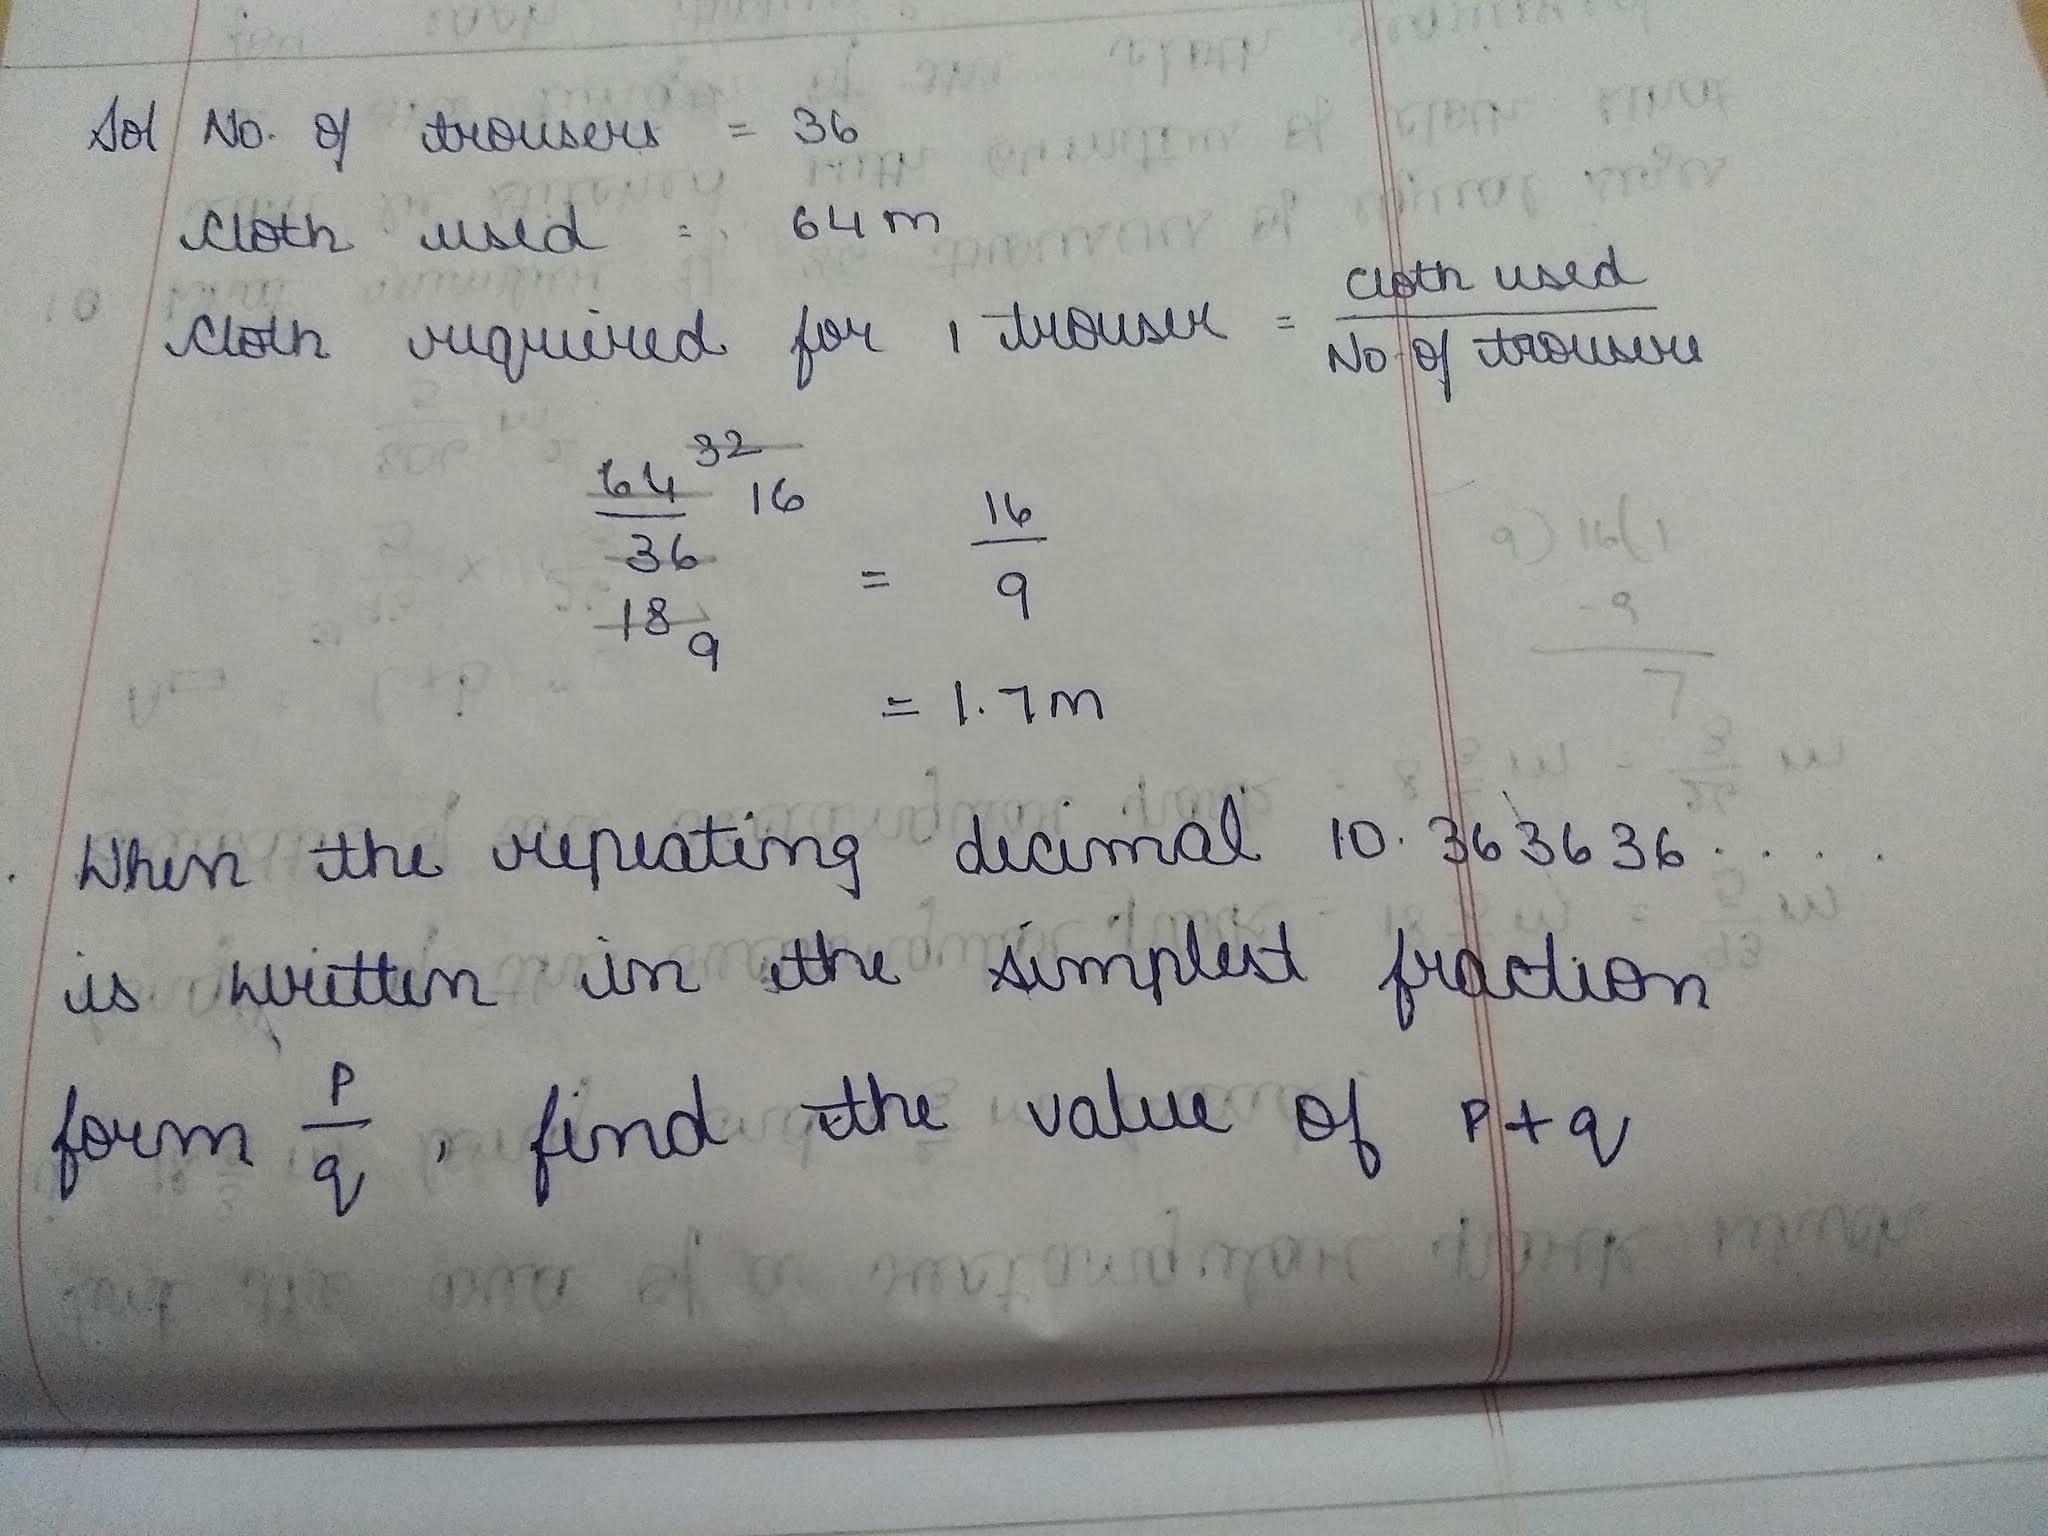 Sol No. of trousers = 36
Cloth used = 64 m
Cloth required for 1 trouser = Cloth used / No of trousers
64 32 16 / 36 18 9 = 16 / 9
= 1.7 m
When the repeating decimal 10.363636....
is written in the simplest fraction
form P/q, find the value of P+q